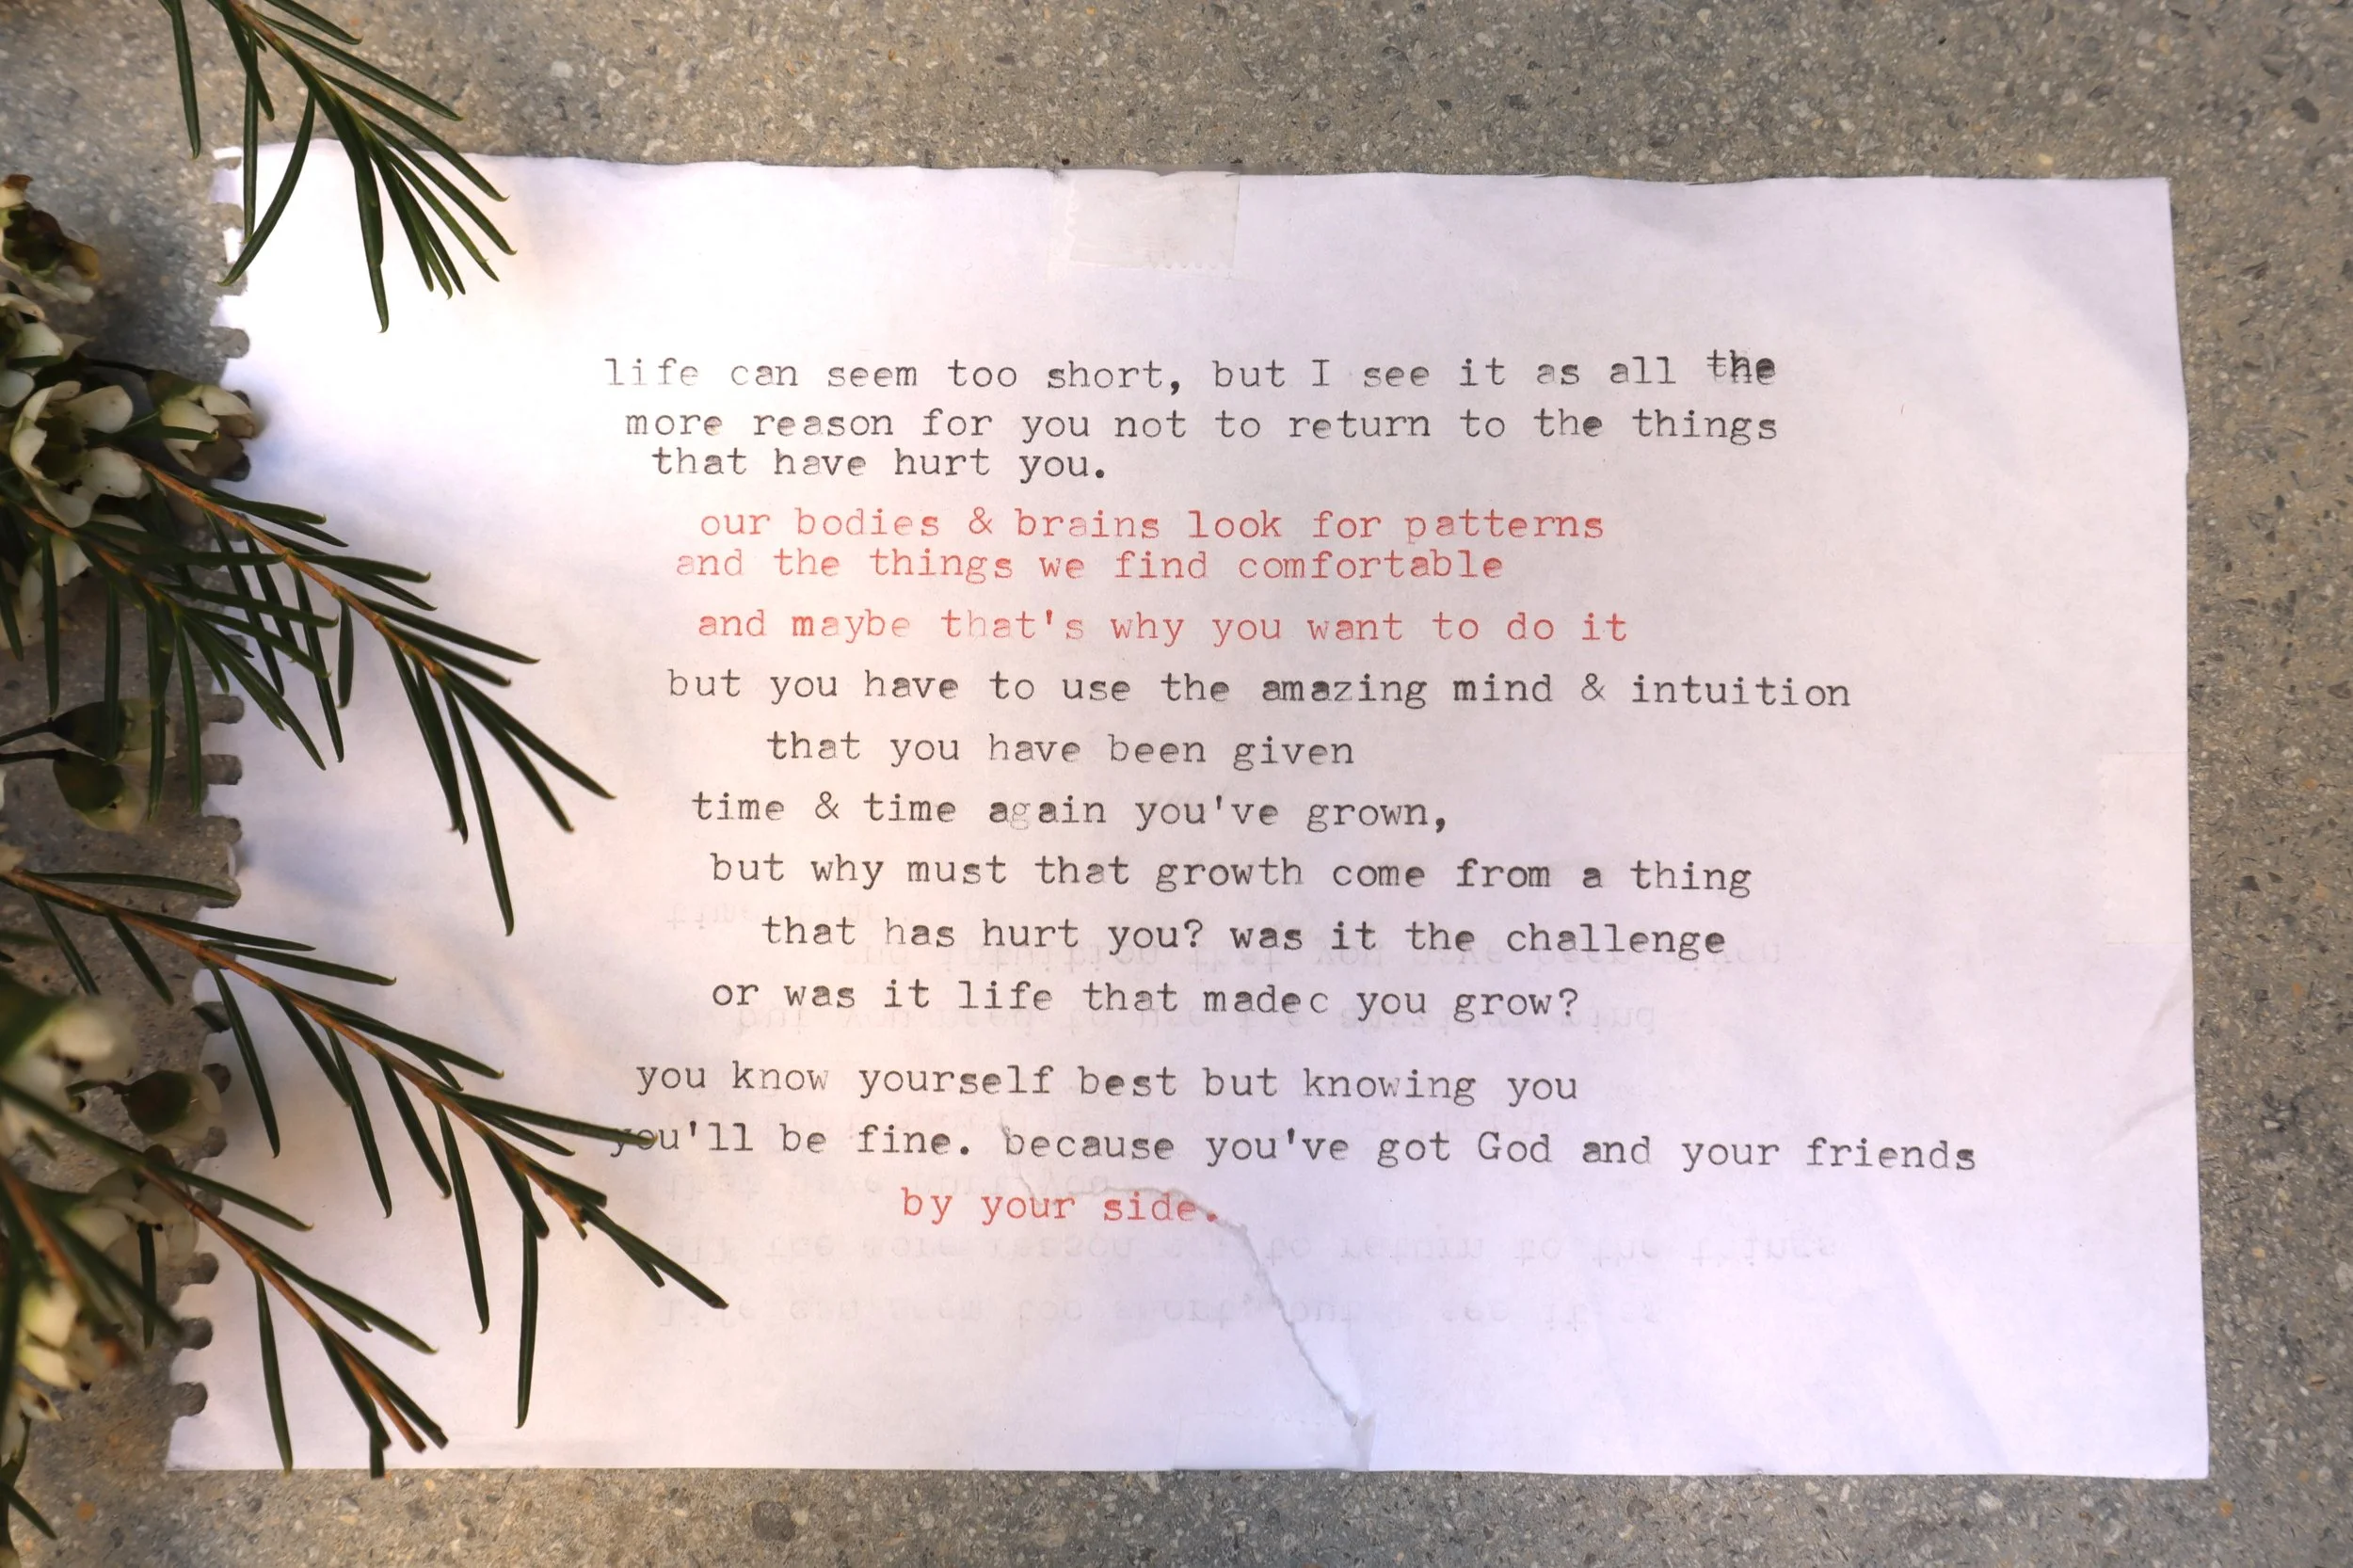 life can seem too short, but I see it as all the
more reason for you not to return to the things
that have hurt you.
our bodies & brains look for patterns
and the things we find comfortable
and maybe that's why you want to do it
but you have to use the amazing mind & intuition
that you have been given
time & time again you've grown,
but why must that growth come from a thing
that has hurt you? was it the challenge
or was it life that madec you grow?
you know yourself best but knowing you
you'll be fine. because you've got God and your friends
by your side.